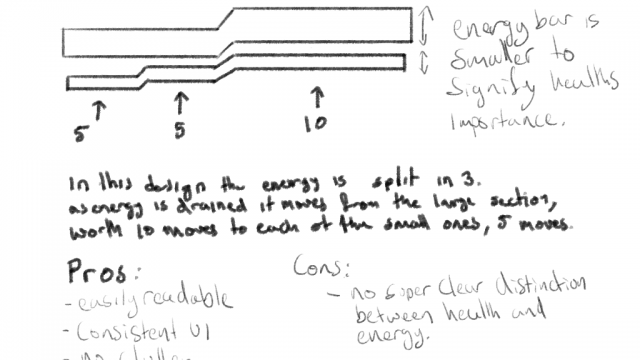 energy bar is
smaller to
signify healths
importance.
5
5
10
In this design the energy is split in 3.
as energy is drained it moves from the large section,
worth 10 moves to each of the small ones, 5 moves.
Pros:
- easily readable
- Consistent UI
- no clutter
Cons:
- no super clear distinction
between health and
energy.